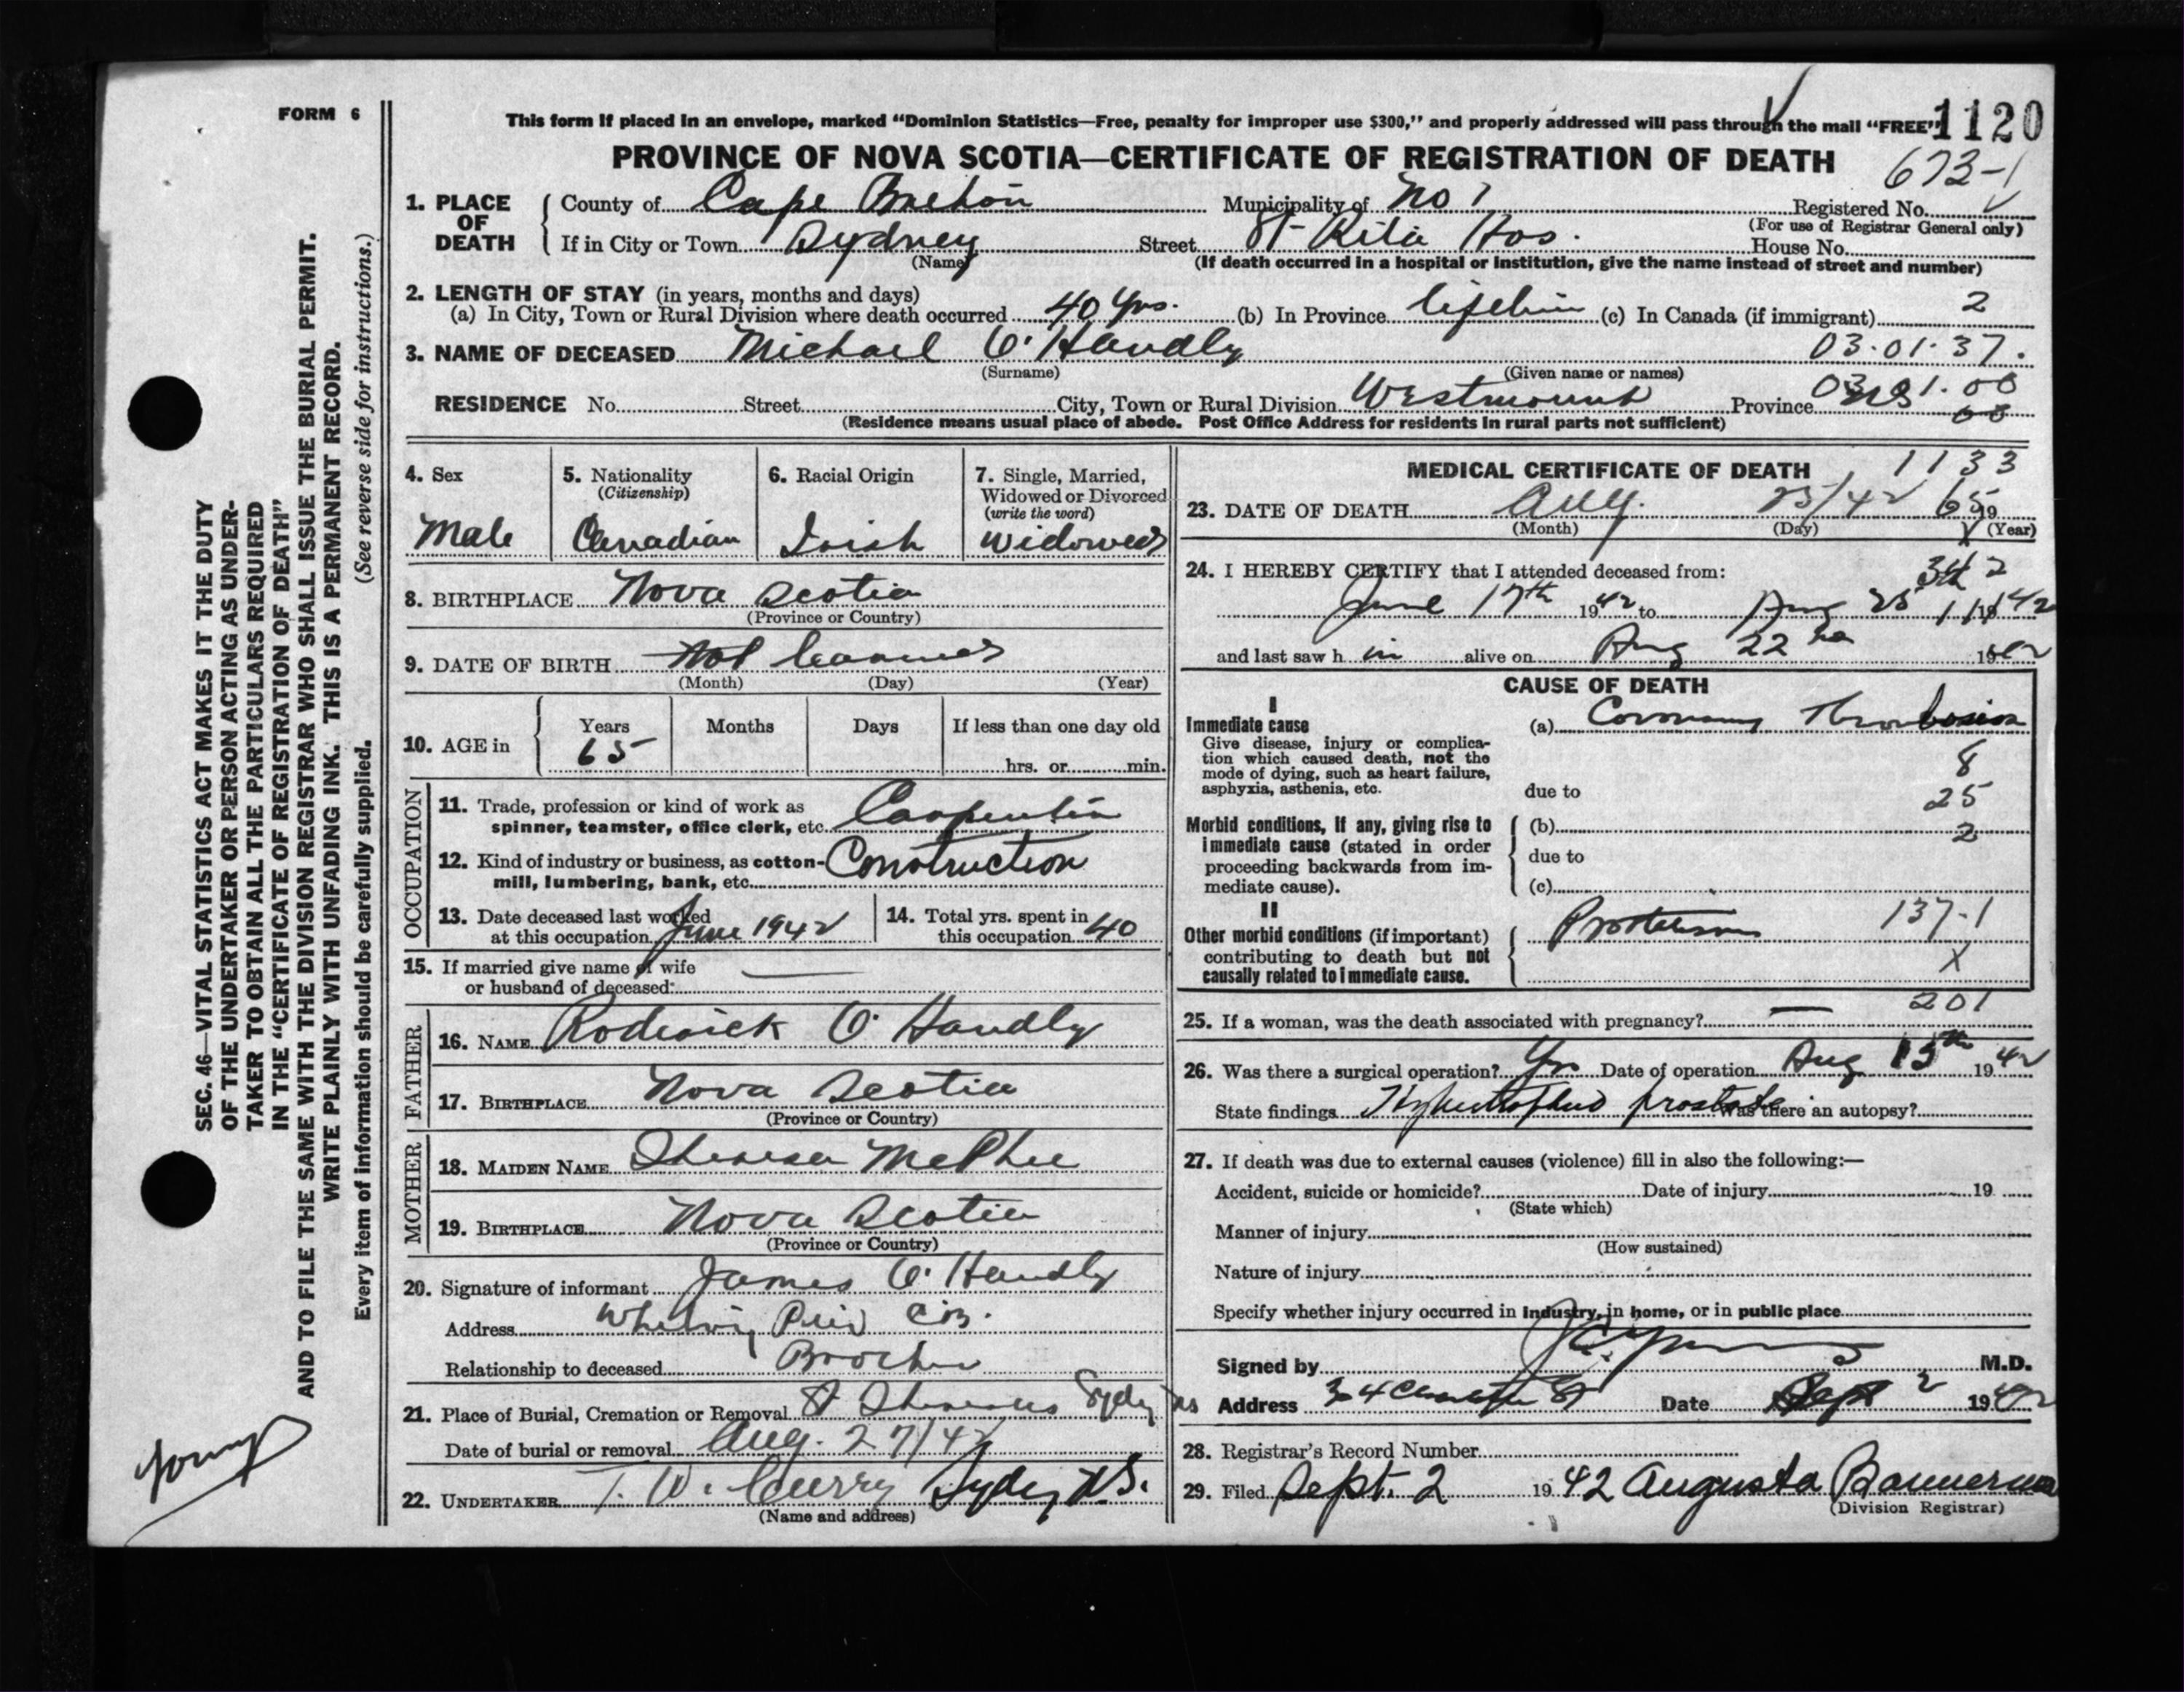 FORM 6
This form if placed in an envelope, marked "Dominion Statistics—Free, penalty for improper use $300," and properly addressed will pass through the mail "FREE" 1120
PROVINCE OF NOVA SCOTIA—CERTIFICATE OF REGISTRATION OF DEATH
673-1
1. PLACE OF DEATH
County of Cape Breton Municipality of No 1 Registered No.
(For use of Registrar General only)
If in City or Town Sydney Street St Rita Hos. House No.
(Name) (If death occurred in a hospital or institution, give the name instead of street and number)
2. LENGTH OF STAY (in years, months and days)
(a) In City, Town or Rural Division where death occurred 40 yrs. (b) In Province lifetime (c) In Canada (if immigrant) 2
3. NAME OF DECEASED Michael O'Handly 03.01.37.
(Surname) (Given name or names)
RESIDENCE No. Street City, Town or Rural Division Westmount Province NS 03 01.00
(Residence means usual place of abode. Post Office Address for residents in rural parts not sufficient)
4. Sex
Male
5. Nationality
(Citizenship)
Canadian
6. Racial Origin
Irish
7. Single, Married,
Widowed or Divorced
(write the word)
Widowed
8. BIRTHPLACE Nova Scotia
(Province or Country)
9. DATE OF BIRTH Not
(Month) (Day) (Year)
10. AGE in Years Months Days If less than one day old
65 hrs. or min.
OCCUPATION
11. Trade, profession or kind of work as
spinner, teamster, office clerk, etc. Carpenter
12. Kind of industry or business, as cotton-
mill, lumbering, bank, etc. Construction
13. Date deceased last worked
at this occupation June 1942
14. Total yrs. spent in
this occupation 40
15. If married give name of wife
or husband of deceased: —
FATHER
16. NAME Roderick O'Handly
17. BIRTHPLACE Nova Scotia
(Province or Country)
MOTHER
18. MAIDEN NAME Theresa McPhee
19. BIRTHPLACE Nova Scotia
(Province or Country)
20. Signature of informant James O'Handly
Address Whitney Pier C.B.
Relationship to deceased Brother
21. Place of Burial, Cremation or Removal St Sydney NS
Date of burial or removal Aug. 27/42
22. UNDERTAKER T. W. Curry Sydney N.S.
(Name and address)
MEDICAL CERTIFICATE OF DEATH 1133
23. DATE OF DEATH Aug. 25/42 65 19
(Month) (Day) (Year)
24. I HEREBY CERTIFY that I attended deceased from:
June 17th 1942 to Aug 25 1942
and last saw h im alive on Aug 22 1942
CAUSE OF DEATH
I
Immediate cause
Give disease, injury or complica-
tion which caused death, not the
mode of dying, such as heart failure,
asphyxia, asthenia, etc.
(a) Coronary Thrombosis
8
due to
25
Morbid conditions, if any, giving rise to
immediate cause (stated in order
proceeding backwards from im-
mediate cause).
(b) 2
due to
(c)
II
Other morbid conditions (if important)
contributing to death but not
causally related to immediate cause.
137-1
X
201
25. If a woman, was the death associated with pregnancy? —
26. Was there a surgical operation? Yes Date of operation Aug 15th 1942
State findings Hypertrophied prostate Was there an autopsy?
27. If death was due to external causes (violence) fill in also the following:—
Accident, suicide or homicide? Date of injury 19
(State which)
Manner of injury
(How sustained)
Nature of injury
Specify whether injury occurred in industry, in home, or in public place
Signed by M.D.
Address Date Sept 2 1942
28. Registrar's Record Number
29. Filed Sept. 2 1942 Augusta Bannerman
(Division Registrar)
SEC. 46—VITAL STATISTICS ACT MAKES IT THE DUTY
OF THE UNDERTAKER OR PERSON ACTING AS UNDER-
TAKER TO OBTAIN ALL THE PARTICULARS REQUIRED
IN THE "CERTIFICATE OF REGISTRATION OF DEATH"
AND TO FILE THE SAME WITH THE DIVISION REGISTRAR WHO SHALL ISSUE THE BURIAL PERMIT.
WRITE PLAINLY WITH UNFADING INK. THIS IS A PERMANENT RECORD.
Every item of information should be carefully supplied. (See reverse side for instructions.)